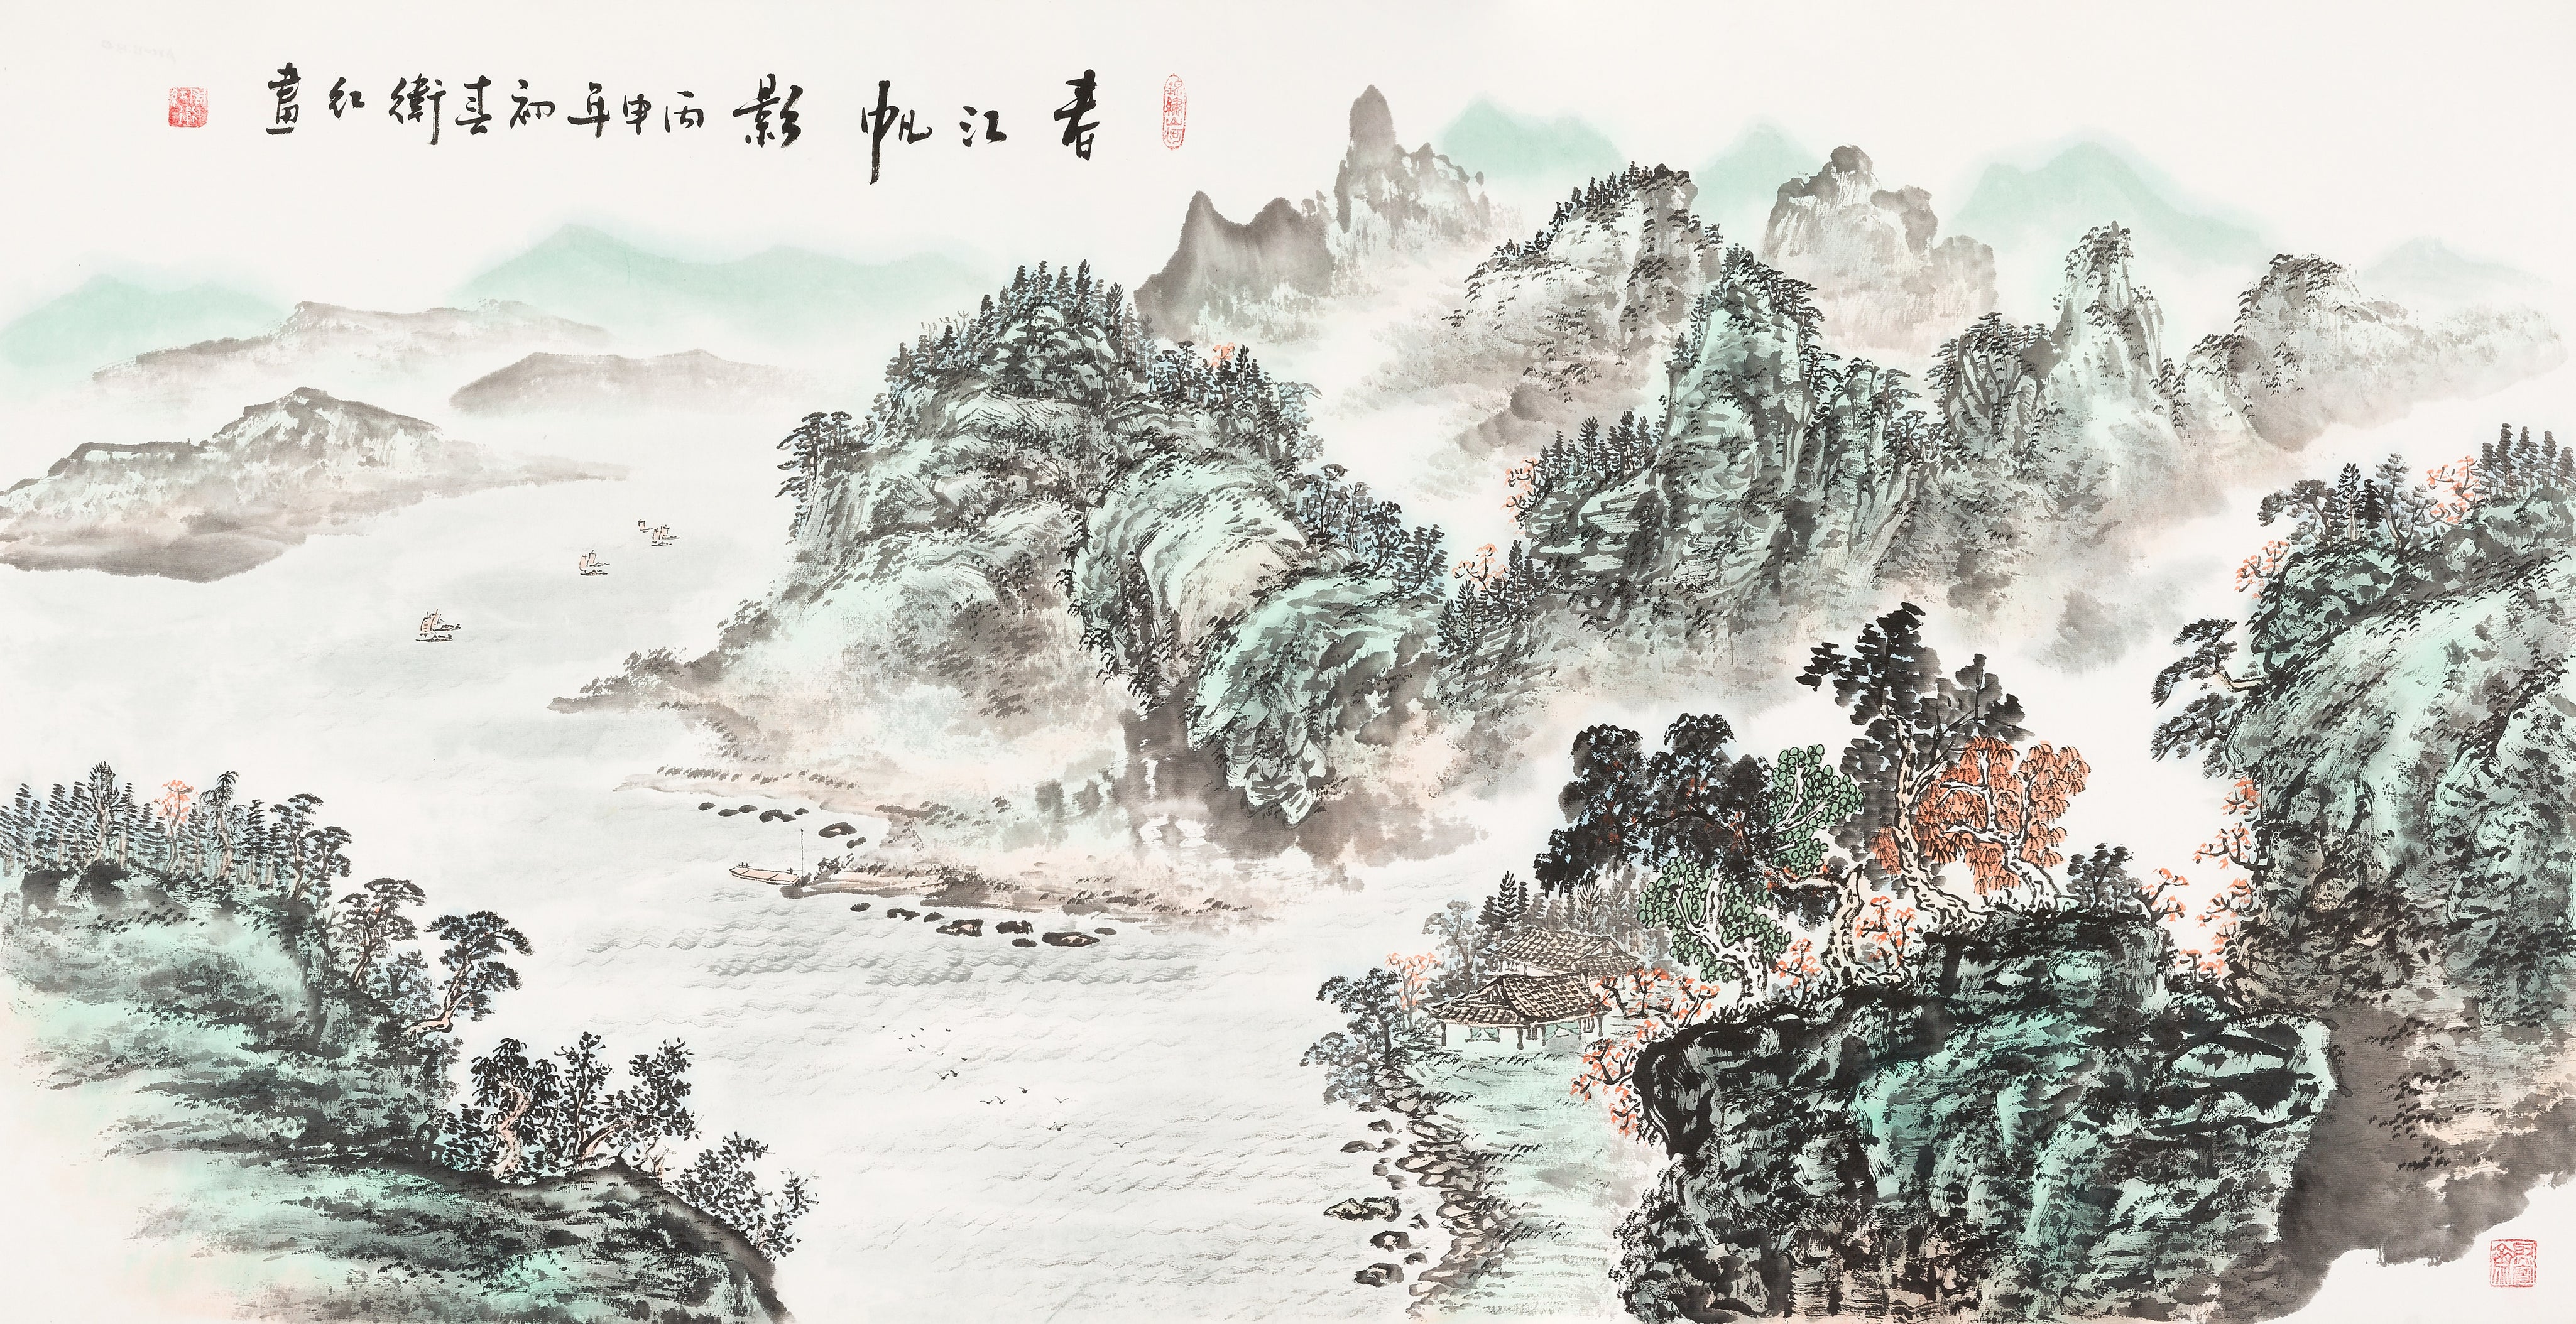 春江帆影 丙申年初春衛紅畫